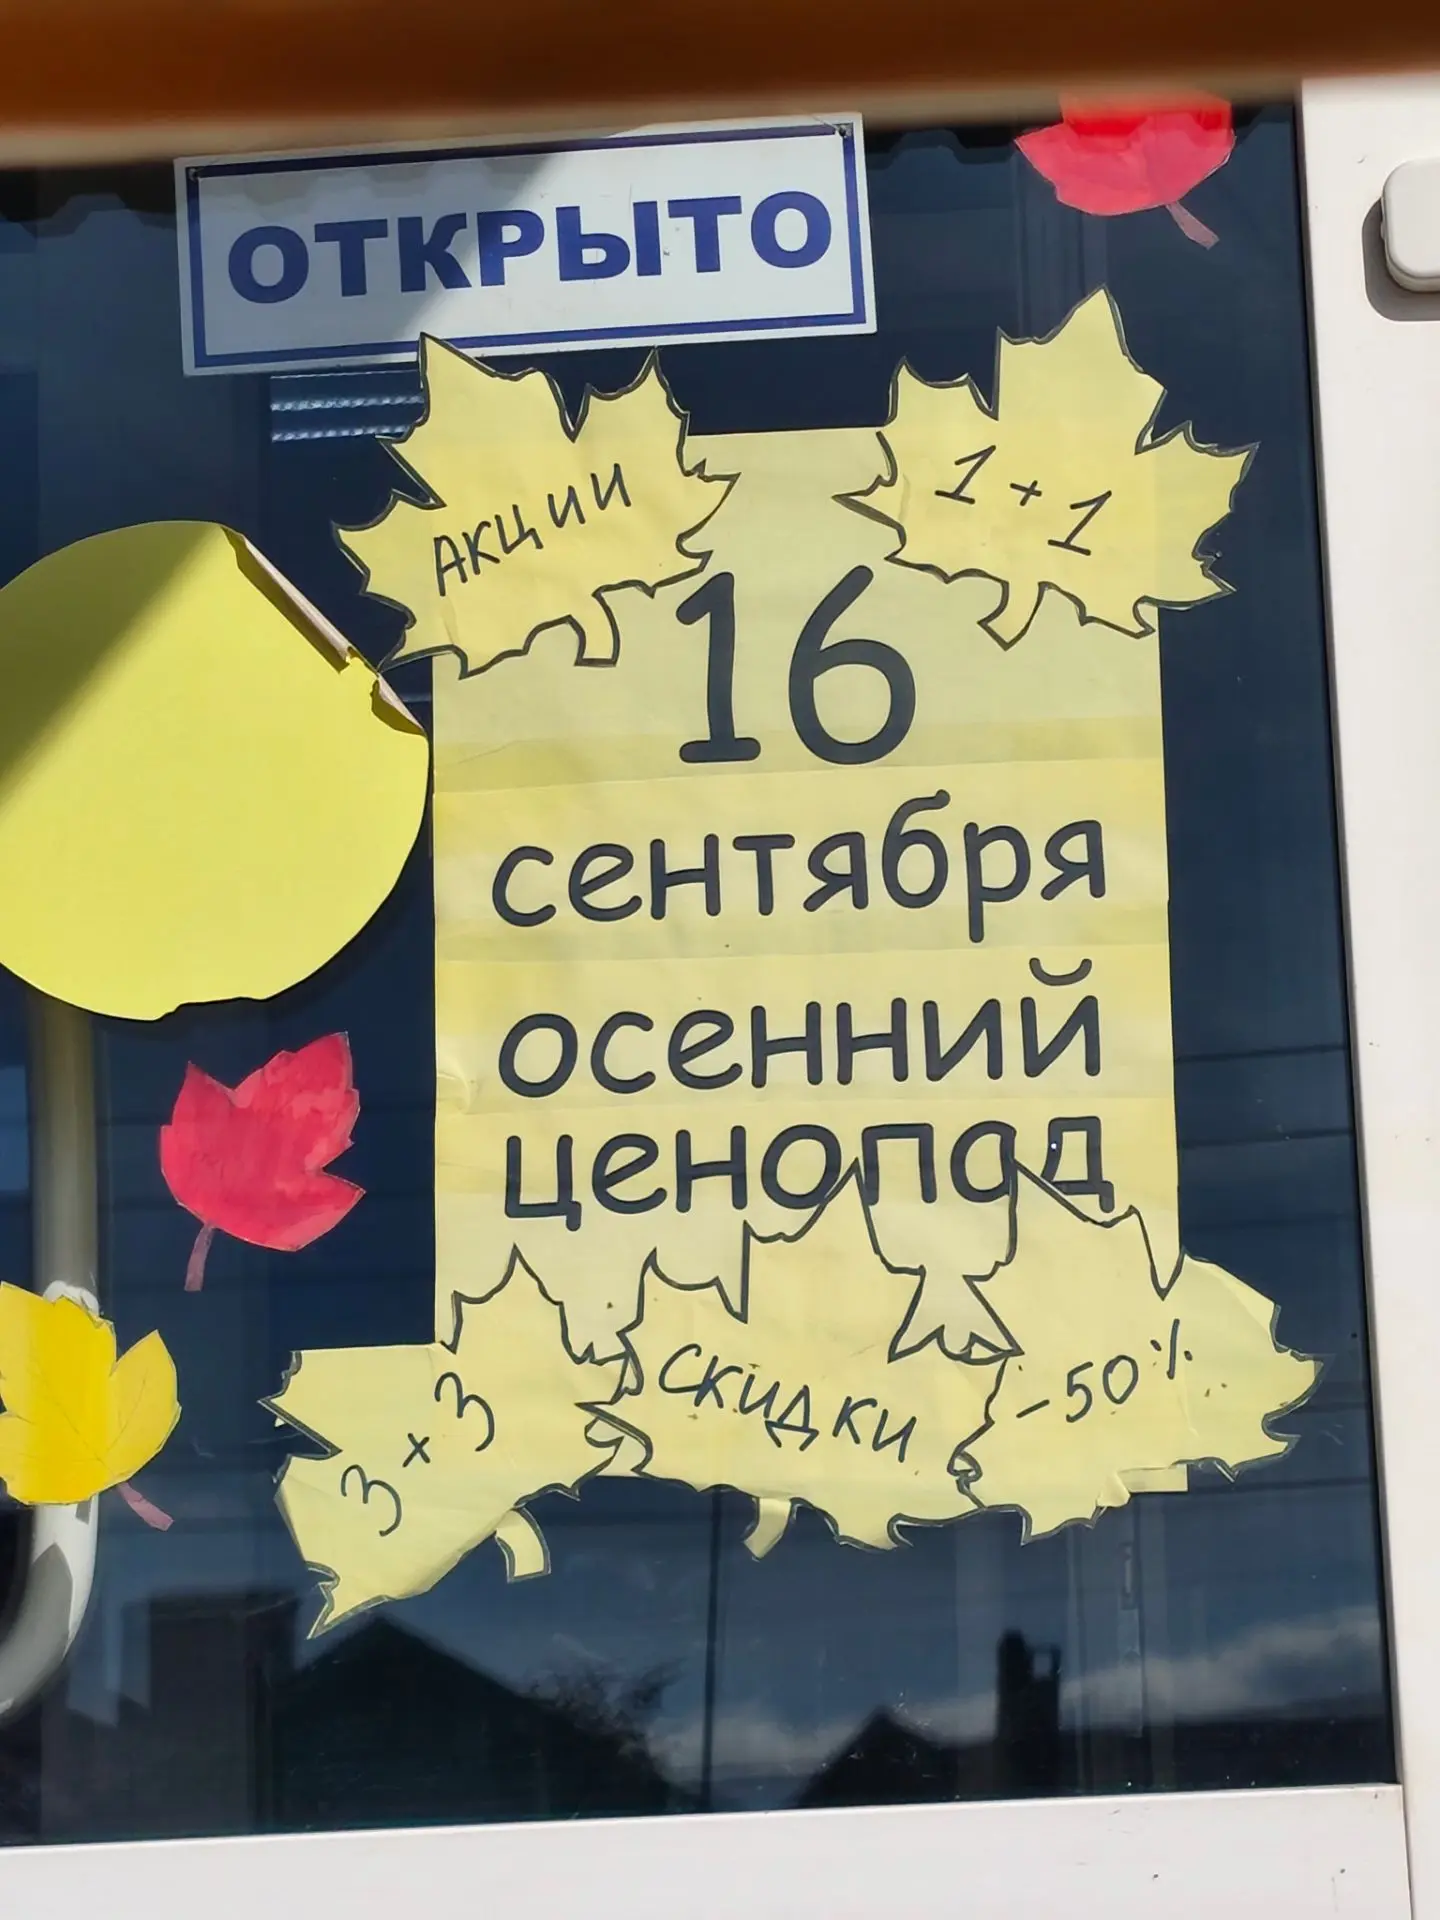 ОТКРЫТО
АКЦИИ
1+1
16
сентября
осенний
ценопад
3×3
СКИДКИ
-50%